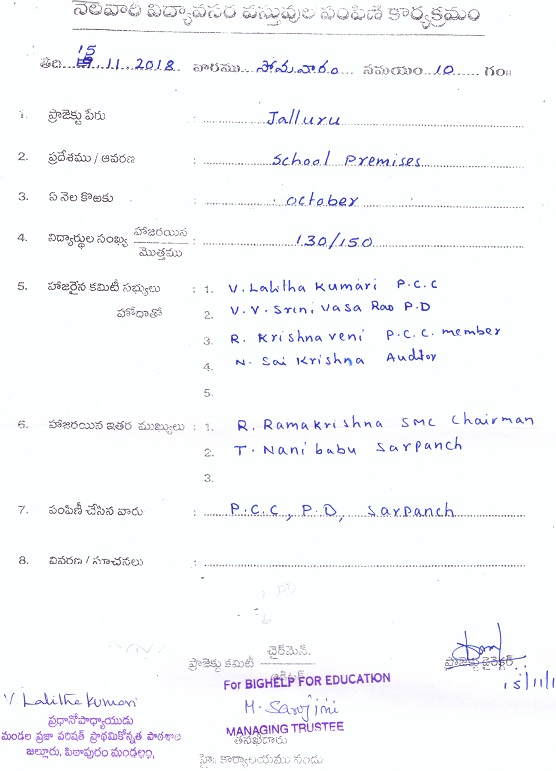 నెలవారి విద్యావసర వస్తువుల పంపిణీ కార్యక్రమం
తేది: 15.11.2018 వారము సోమవారం సమయం 10 గం॥
1. ప్రాజెక్టు పేరు : Jalluru
2. ప్రదేశము / ఆవరణ : School Premises
3. ఏ నెల కొఱకు : october
4. విద్యార్థుల సంఖ్య హాజరయిన / మొత్తము : 130/150
5. హాజరైన కమిటీ సభ్యులు : 1. V. Lalitha Kumari P.C.C
హోదాతో 2. V.V. Srinivasa Rao P.D
3. R. Krishnaveni P.C.C. member
4. N. Sai Krishna Auditor
5.
6. హాజరయిన ఇతర ముఖ్యులు : 1. R. Ramakrishna SMC Chairman
2. T. Nanibabu Sarpanch
3.
7. పంపిణీ చేసిన వారు : P.C.C, P.D, Sarpanch
8. వివరణ / సూచనలు :
ప్రాజెక్టు కమిటీ ఛైర్మెన్.
ప్రాజెక్టు డైరెక్టర్.
15/11/1
For BIGHELP FOR EDUCATION
V Lalitha Kumari
M. Sarojini
ప్రధానోపాధ్యాయుడు
MANAGING TRUSTEE
మండల ప్రజా పరిషత్ ప్రాథమికోన్నత పాఠశాల
జల్లూరు, పిఠాపురం మండలం,
కార్యాలయము నందు